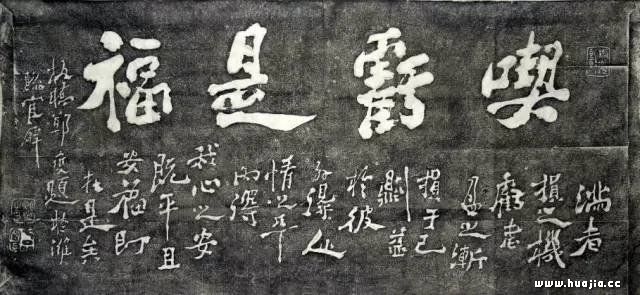 喫虧是福
滿者
損之機
虧者
盈之漸
損于己
則益
於彼
外得人
情之平
內得
我心之安
既平且
安福即
在是矣
板橋鄭燮題於濰
縣官廨
www.huajia.cc